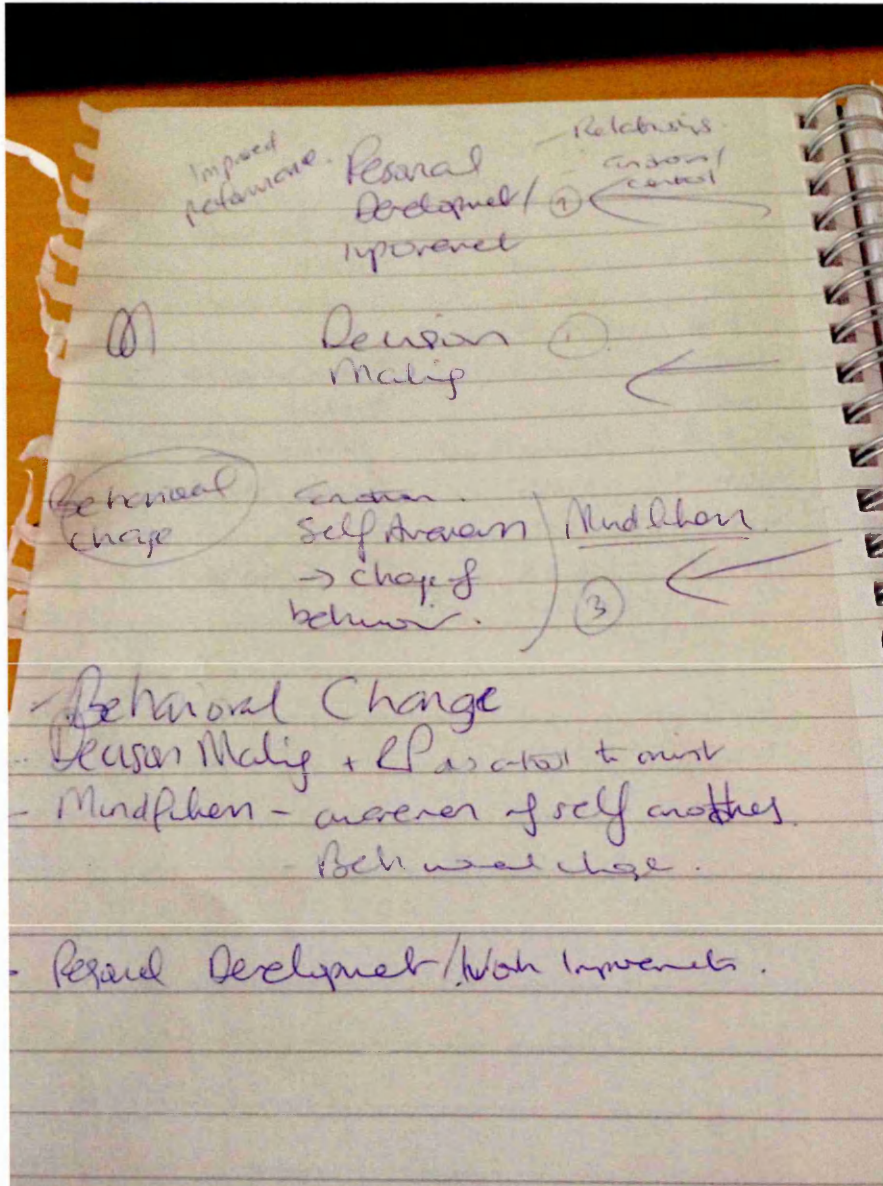 Improved
performance.
Personal
Development/
improvement
- Relationships.
- emotion/
control
Decision ①
Making
Behavioural
change
emotion.
Self Awareness
→ change of
behaviour.
Mindfulness
③
- Behavioral Change
- Decision Making + RP as a tool to
- Mindfulness - awareness of self and others.
- Behavioural change.
- Personal Development/Work Improvements.